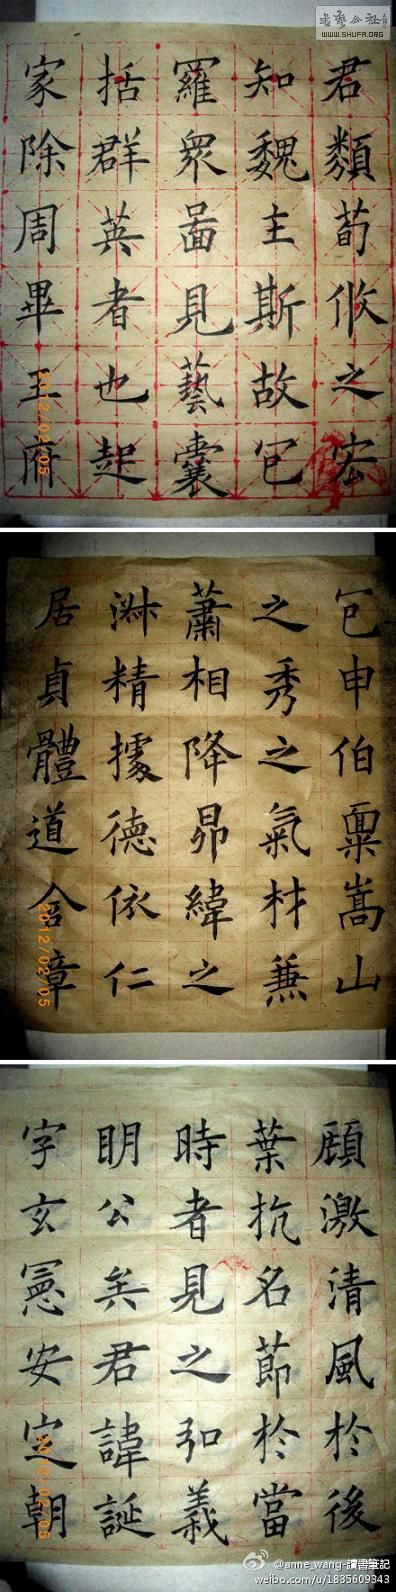 書藝公社
WWW.SHUFA.ORG
君類荀攸之宏
知魏主斯故包
羅眾啚見藝囊
括群英者也起
家除周畢王府
2012/02/05
包申伯稟嵩山
之秀之氣材兼
蕭相降昴緯之
淑精據德依仁
居貞體道含章
2012/02/05
顧激清風於後
葉抗名節於當
時者見之弘義
明公矣君諱誕
字玄憲安定朝
2012/02/05
@anne_wang-讀書筆記
weibo.com/u/1835609343